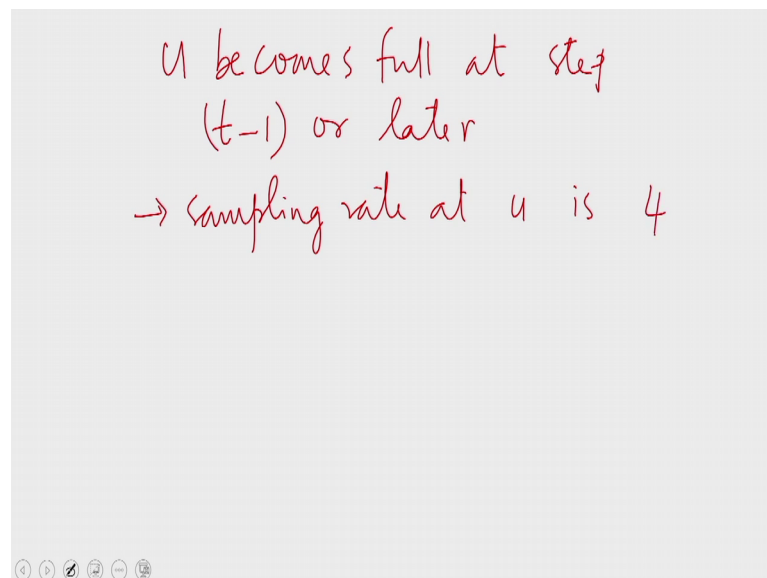 u becomes full at step
(t-1) or later
→ sampling rate at u is 4